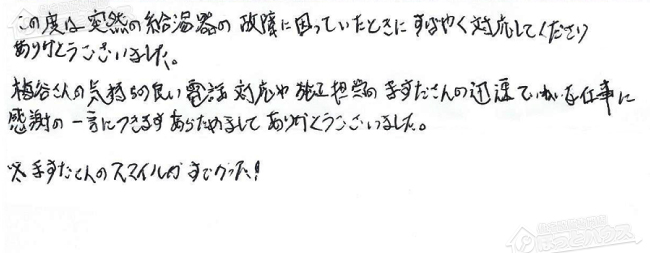 この度は突然の給湯器の故障に困っていたときにすばやく対応してくださり
ありがとうございました。
梅谷さんの気持ちの良い電話対応や施工担当のますださんの迅速ていねいな仕事に
感謝の一言につきます あらためまして ありがとうございました。
※ ますださんのスマイルがすてきでした!